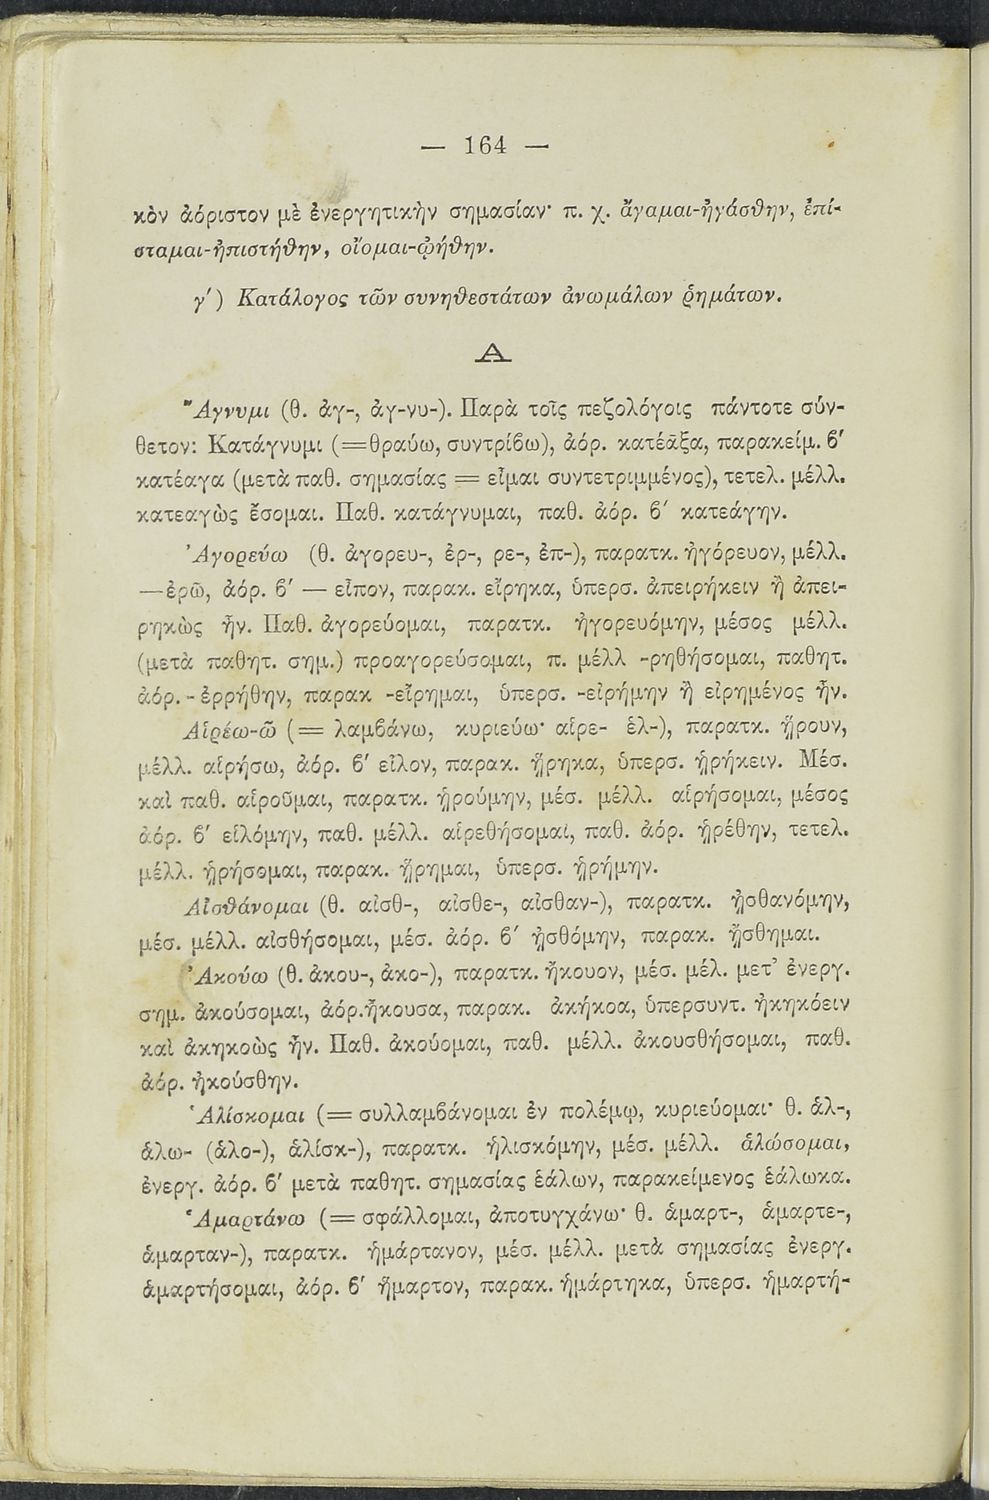 — 164 —
κὸν ἀόριστον μὲ ἐνεργητικὴν σημασίαν· π. χ. ἄγαμαι-ἠγάσθην, ἐπί-
σταμαι-ἠπιστήθην, οἴομαι-ᾠήθην.
γ′) Κατάλογος τῶν συνηθεστάτων ἀνωμάλων ῥημάτων.
Α
Ἄγνυμι (θ. ἀγ-, ἀγ-νυ-). Παρὰ τοῖς πεζολόγοις πάντοτε σύν-
θετον: Κατάγνυμι (=θραύω, συντρίβω), ἀόρ. κατέᾱξα, παρακείμ. β′
κατέαγα (μετὰ παθ. σημασίας = εἶμαι συντετριμμένος), τετελ. μέλλ.
κατεαγὼς ἔσομαι. Παθ. κατάγνυμαι, παθ. ἀόρ. β′ κατεάγην.
Ἀγορεύω (θ. ἀγορευ-, ἐρ-, ρε-, ἐπ-), παρατκ. ἠγόρευον, μέλλ.
—ἐρῶ, ἀόρ. β′ — εἶπον, παρακ. εἴρηκα, ὑπερσ. ἀπειρήκειν ἢ ἀπει-
ρηκὼς ἦν. Παθ. ἀγορεύομαι, παρατκ. ἠγορευόμην, μέσος μέλλ.
(μετὰ παθητ. σημ.) προαγορεύσομαι, π. μέλλ -ρηθήσομαι, παθητ.
ἀόρ. - ἐρρήθην, παρακ -εἴρημαι, ὑπερσ. -εἰρήμην ἢ εἰρημένος ἦν.
Αἱρέω-ῶ (= λαμβάνω, κυριεύω· αἱρε- ἑλ-), παρατκ. ᾕρουν,
μέλλ. αἱρήσω, ἀόρ. β′ εἷλον, παρακ. ᾕρηκα, ὑπερσ. ᾑρήκειν. Μέσ.
καὶ παθ. αἱροῦμαι, παρατκ. ᾑρούμην, μέσ. μέλλ. αἱρήσομαι, μέσος
ἀόρ. β′ εἱλόμην, παθ. μέλλ. αἱρεθήσομαι, παθ. ἀόρ. ᾑρέθην, τετελ.
μέλλ. ᾑρήσομαι, παρακ. ᾕρημαι, ὑπερσ. ᾑρήμην.
Αἰσθάνομαι (θ. αἰσθ-, αἰσθε-, αἰσθαν-), παρατκ. ᾐσθανόμην,
μέσ. μέλλ. αἰσθήσομαι, μέσ. ἀόρ. β′ ᾐσθόμην, παρακ. ᾔσθημαι.
Ἀκούω (θ. ἀκου-, ἀκο-), παρατκ. ἤκουον, μέσ. μέλ. μετ’ ἐνεργ.
σημ. ἀκούσομαι, ἀόρ. ἤκουσα, παρακ. ἀκήκοα, ὑπερσυντ. ἠκηκόειν
καὶ ἀκηκοὼς ἦν. Παθ. ἀκούομαι, παθ. μέλλ. ἀκουσθήσομαι, παθ.
ἀόρ. ἠκούσθην.
Ἁλίσκομαι (= συλλαμβάνομαι ἐν πολέμῳ, κυριεύομαι· θ. ἁλ-,
ἁλω- (ἁλο-), ἁλίσκ-), παρατκ. ἡλισκόμην, μέσ. μέλλ. ἁλώσομαι,
ἐνεργ. ἀόρ. β′ μετὰ παθητ. σημασίας ἑάλων, παρακείμενος ἑάλωκα.
Ἁμαρτάνω (= σφάλλομαι, ἀποτυγχάνω· θ. ἁμαρτ-, ἁμαρτε-,
ἁμαρταν-), παρατκ. ἡμάρτανον, μέσ. μέλλ. μετὰ σημασίας ἐνεργ.
ἁμαρτήσομαι, ἀόρ. β′ ἥμαρτον, παρακ. ἡμάρτηκα, ὑπερσ. ἡμαρτή-